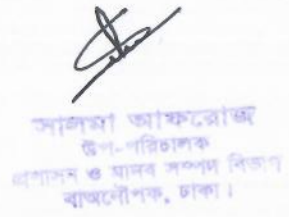 সালমা আফরোজ
উপ-পরিচালক
প্রশাসন ও মানব সম্পদ বিভাগ
বাঅনৌপক, ঢাকা।